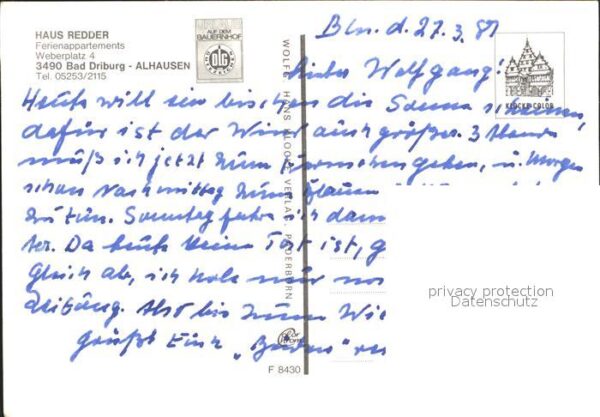 HAUS REDDER
Ferienappartements
Weberplatz 4
3490 Bad Driburg - ALHAUSEN
Tel. 05253/2115
AUF DEM BAUERNHOF
DLG
WOLFG. HANS KLOCKE VERLAG, PADERBORN
KLOCKE-COLOR
F 8430
Bln. d. 27.3.87
Lieber Wolfgang!
Heute will ein bischen die Sonne scheinen,
dafür ist der Wind auch größer. 3
muß ich jetzt zum gehen, u. Morgen
schon Nachmittag zum
zu tun. Sonntag fahre ich dann
Da heute kein ist, g
gleich ab, ich hole nur noc
Zeitung. Also bis zum Wie
grüßt Euch
privacy protection
Datenschutz